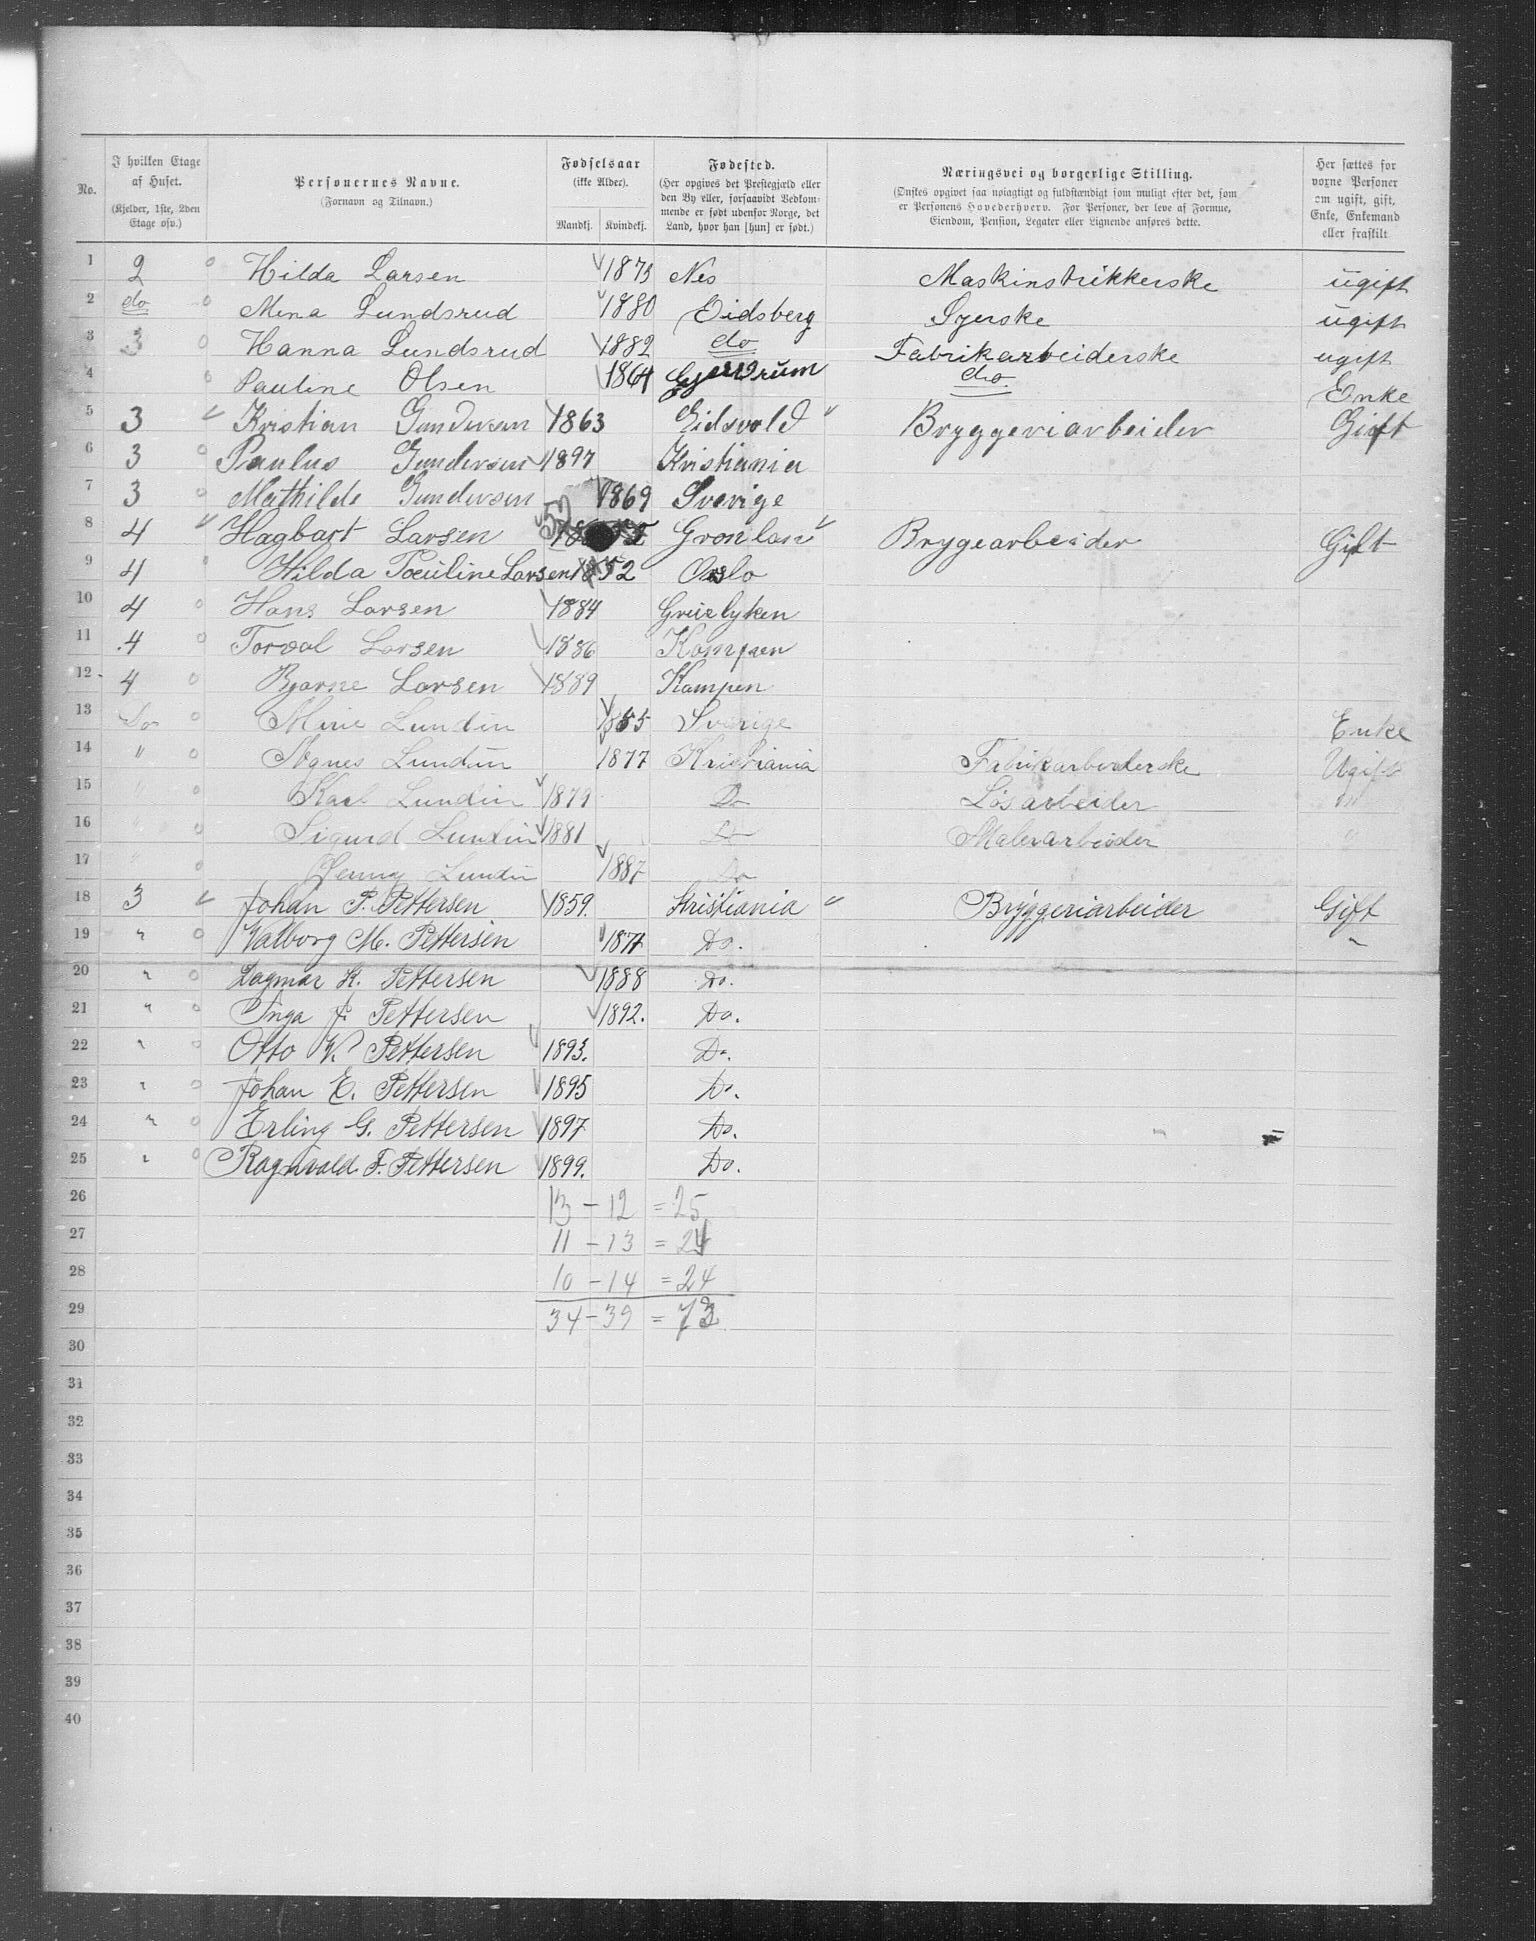 No. I hvilken Etage af Huset. (Kjelder, 1ste, 2den Etage osv.) Personernes Navne. (Fornavn og Tilnavn.) Fødselsaar (ikke Alder). Mandkj. Kvindekj. Fødested. (Her opgives det Prestegjæld eller den By eller, forsaavidt Vedkommende er født udenfor Norge, det Land, hvor han [hun] er født.) Næringsvei og borgerlige Stilling. (Ønskes opgivet saa nøiagtigt og fuldstændigt som muligt efter det, som er Personens Hovederhverv. For Personer, der leve af Formue, Eiendom, Pension, Legater eller Lignende anføres dette. Her sættes for voxne Personer om ugift, gift, Enke, Enkemand eller fraskilt
1 2 Hilda Larsen 1873 Nes Maskinstrikkerske ugift
2 do Mina Lundsrud 1880 Eidsberg Syerske ugift
3 3 Hanna Lundsrud 1882 do Fabrikarbeiderske ugift
4 Pauline Olsen 1864 Gjerdrum do. Enke
5 3 " Kristian Gundersen 1863 Eidsvold " Bryggeriarbeider Gift
6 3 Paulus Gundersen 1897 Kristiania
7 3 Mathilde Gundersen 1869 Sverige
8 4 " Hagbart Larsen 52 Gronlan " Brygearbeider Gift
9 4 Hilda Pauline Larsen 1852 Oslo
10 4 Hans Larsen 1884
11 4 Torval Larsen 1886 Kampen
12 4 Bjarne Larsen 1889 Kampen
13 Do Mine Lundin 1855 Sverige Enke
14 " Agnes Lundin 1877 Kristiania Fabrikarbeiderske Ugift
15 " Karl Lundin 1879 Do Løsarbeider
16 " Sigurd Lundin 1881 Do Malerarbeider "
17 " Jenny Lundin 1887 Do
18 3 " Johan P. Pettersen 1859. Kristiania " Bryggeriarbeider Gift
19 " Valborg M. Pettersen 1871 Do. "
20 " Dagmar K. Pettersen 1888 Do.
21 " Inga J. Pettersen 1892. Do.
22 " Otto V. Pettersen 1893. Do.
23 " Johan E. Pettersen 1895 Do.
24 " Erling G. Pettersen 1897 Do.
25 " Ragnvald F. Pettersen 1899. Do.
26 13 - 12 = 25
27 11 - 13 = 24
28 10 - 14 = 24
29 34 - 39 = 73
30
31
32
33
34
35
36
37
38
39
40